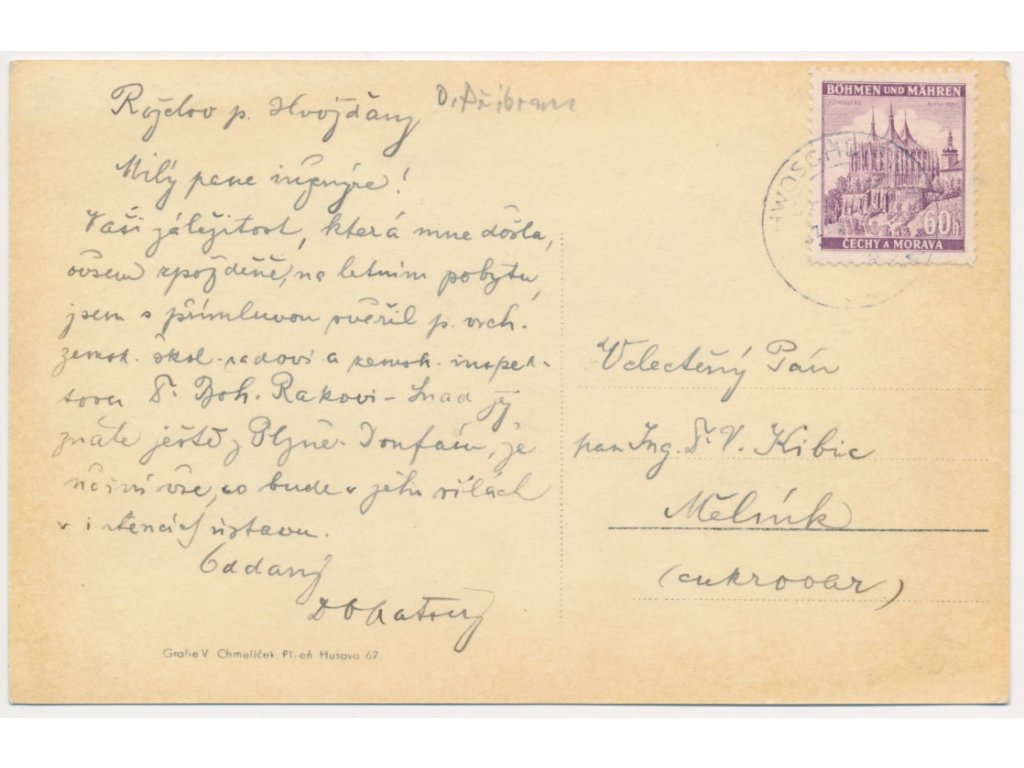 Rojelov p. Hvožďany O. Příbram
Milý pane inženýre!
Vaši záležitost, která mne došla,
ovšem zpožděně, na letním pobytu,
jsem s přímluvou svěřil p. vrch.
zemsk. škol. radovi a zemsk. inspek-
toru F. Boh. Rakovi – Snad jej
znáte ještě z Plzně. Doufám, že
učiní vše, co bude v jeho silách
v intencích ústavu.
Oddaný
BÖHMEN UND MÄHREN
60h
ČECHY A MORAVA
HWOSCH
Velectěný Pán
pan Ing. F. V. Kibic
Mělník
(cukrovar)
Grafie V. Chmelíček Plzeň Husova 67